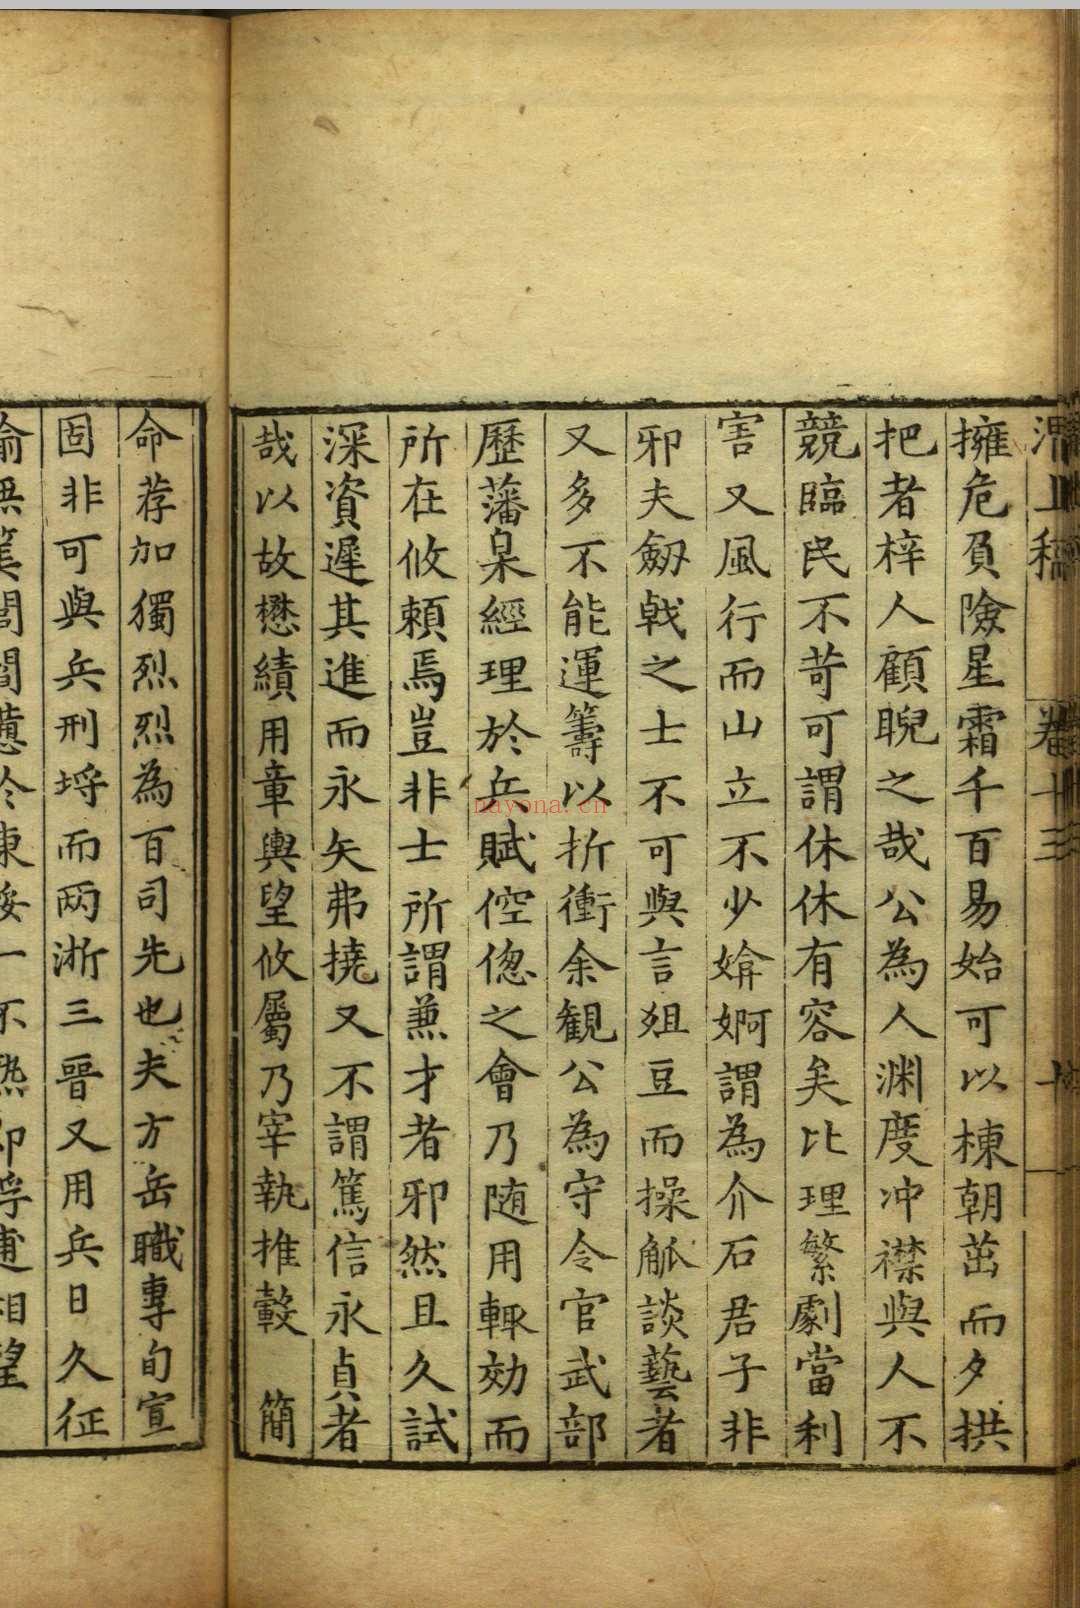 卷十三
擁危負險星霜千百易始可以棟朝茁而夕拱
把者梓人顧睨之哉公為人渊度冲襟與人不
競臨民不苛可謂休休有容矣比理繁劇當利
害又風行而山立不少媕婀謂為介石君子非
邪夫劔戟之士不可與言俎豆而操觚談藝者
又多不能運籌以折衝余観公為守令官武部
歷藩臬經理於兵賦倥傯之會乃随用輙効而
所在攸賴焉豈非士所謂兼才者邪然且久試
深資遲其進而永矢弗撓又不謂篤信永貞者
哉以故懋績用章輿望攸屬乃宰執推轂 簡
命荐加獨烈烈為百司先也夫方岳職專旬宣
固非可與兵刑埒而两淅三晉又用兵日久征
nayona.cn